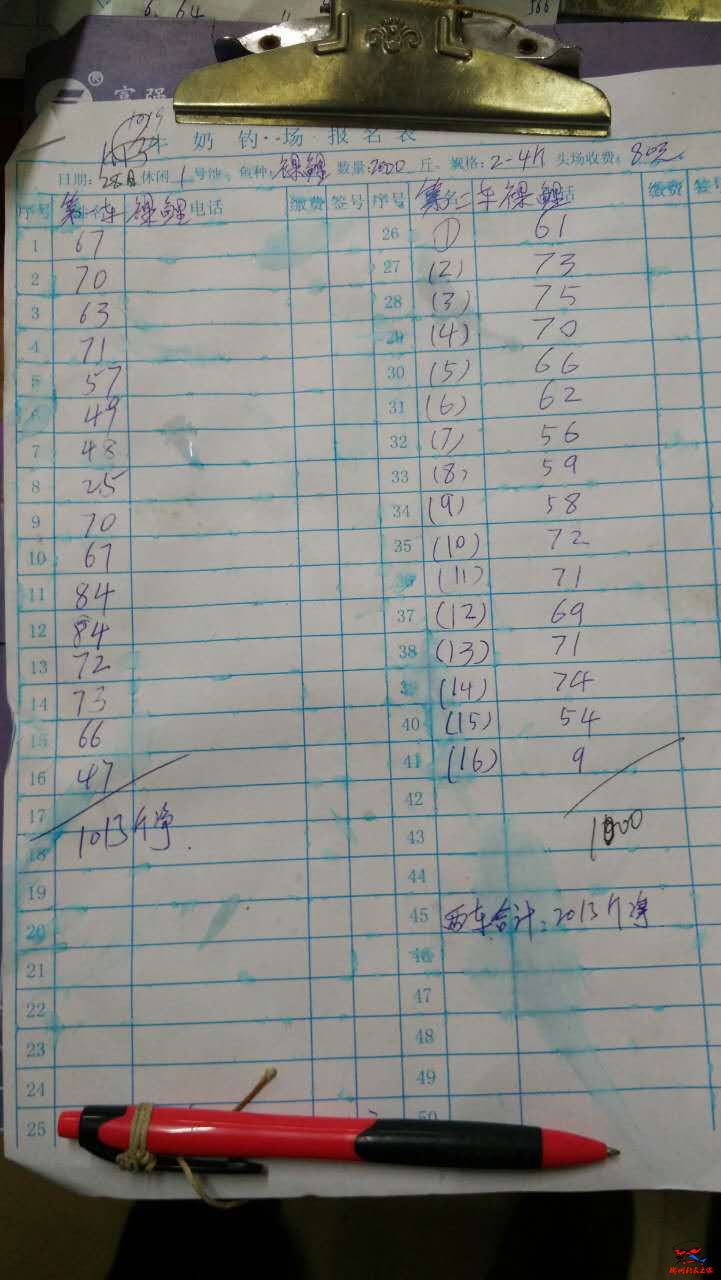 富强
牛奶钓场报名表
日期: 28日 休闲 1 号池 鱼种: 祼鲤 数量: 2000 斤 规格: 2-4斤 头场收费: 80元
序号 第一车 祼鲤 电话 缴费 签号 序号 第二车 祼鲤 话 缴费 签号
1 67 26 (1) 61
2 70 27 (2) 73
3 63 28 (3) 75
4 71 29 (4) 70
5 57 30 (5) 66
6 49 31 (6) 62
7 48 32 (7) 56
8 25 33 (8) 59
9 70 34 (9) 58
10 67 35 (10) 72
11 84 36 (11) 71
12 84 37 (12) 69
13 72 38 (13) 71
14 73 39 (14) 74
15 66 40 (15) 54
16 47 41 (16) 9
17 42
18 1013斤净. 43 1000
19 44
20 45 两车合计: 2013斤净
21 46
22 47
23 48
24 49
25 50